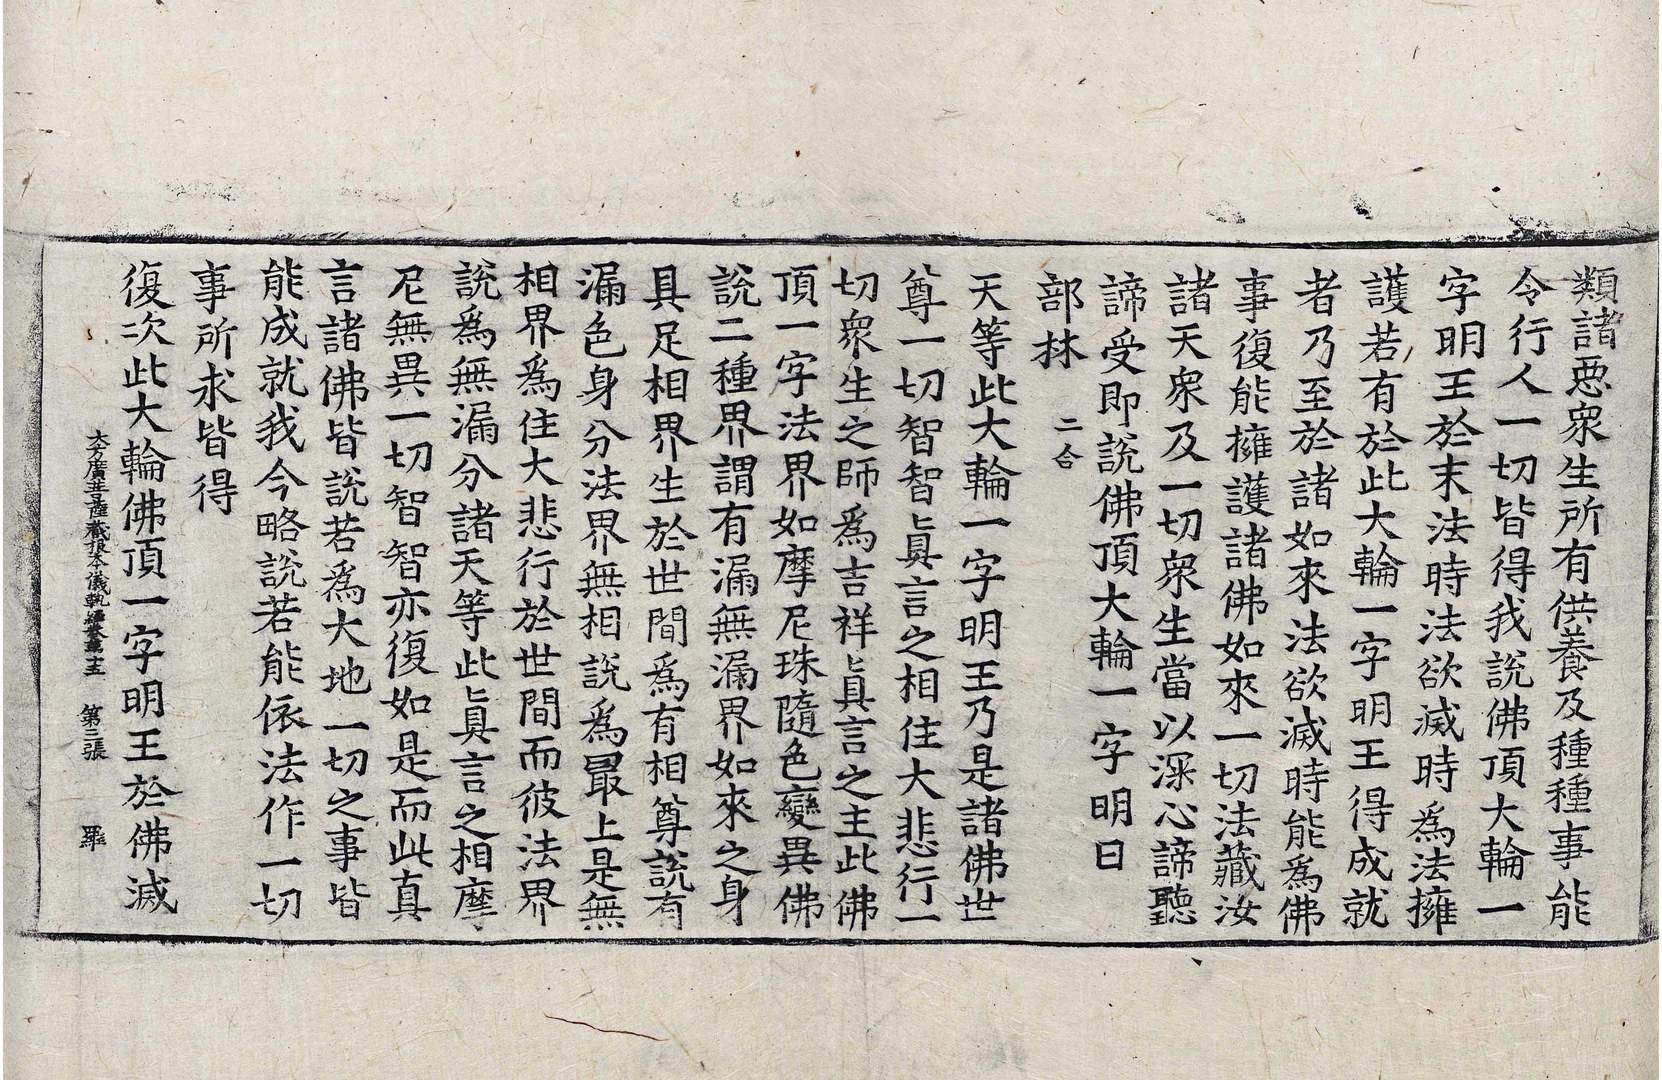 類諸惡衆生所有供養及種種事能
令行人一切皆得我說佛頂大輪一
字明王於末法時法欲滅時爲法擁
護若有於此大輪一字明王得成就
者乃至於諸如來法欲滅時能爲佛
事復能擁護諸佛如來一切法藏汝
諸天衆及一切衆生當以深心諦聽
諦受即說佛頂大輪一字明曰
部林 二合
天等此大輪一字明王乃是諸佛世
尊一切智智真言之相住大悲行一
切衆生之師爲吉祥真言之主此佛
頂一字法界如摩尼珠隨色變異佛
說二種界謂有漏無漏界如來之身
具足相界生於世間爲有相尊說有
漏色身分法界無相說爲最上是無
相界爲住大悲行於世間而彼法界
說爲無漏分諸天等此真言之相摩
尼無異一切智智亦復如是而此真
言諸佛皆說若爲大地一切之事皆
能成就我今略說若能依法作一切
事所求皆得
復次此大輪佛頂一字明王於佛滅
大方廣菩薩藏根本儀軌經卷第十三 第三張 羅